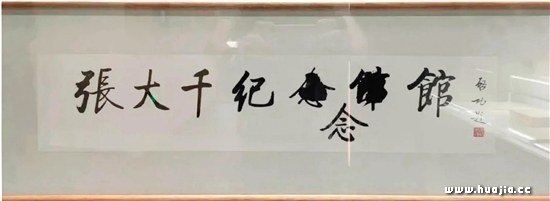 張大千纪館
念
啓功题
www.huajia.cc